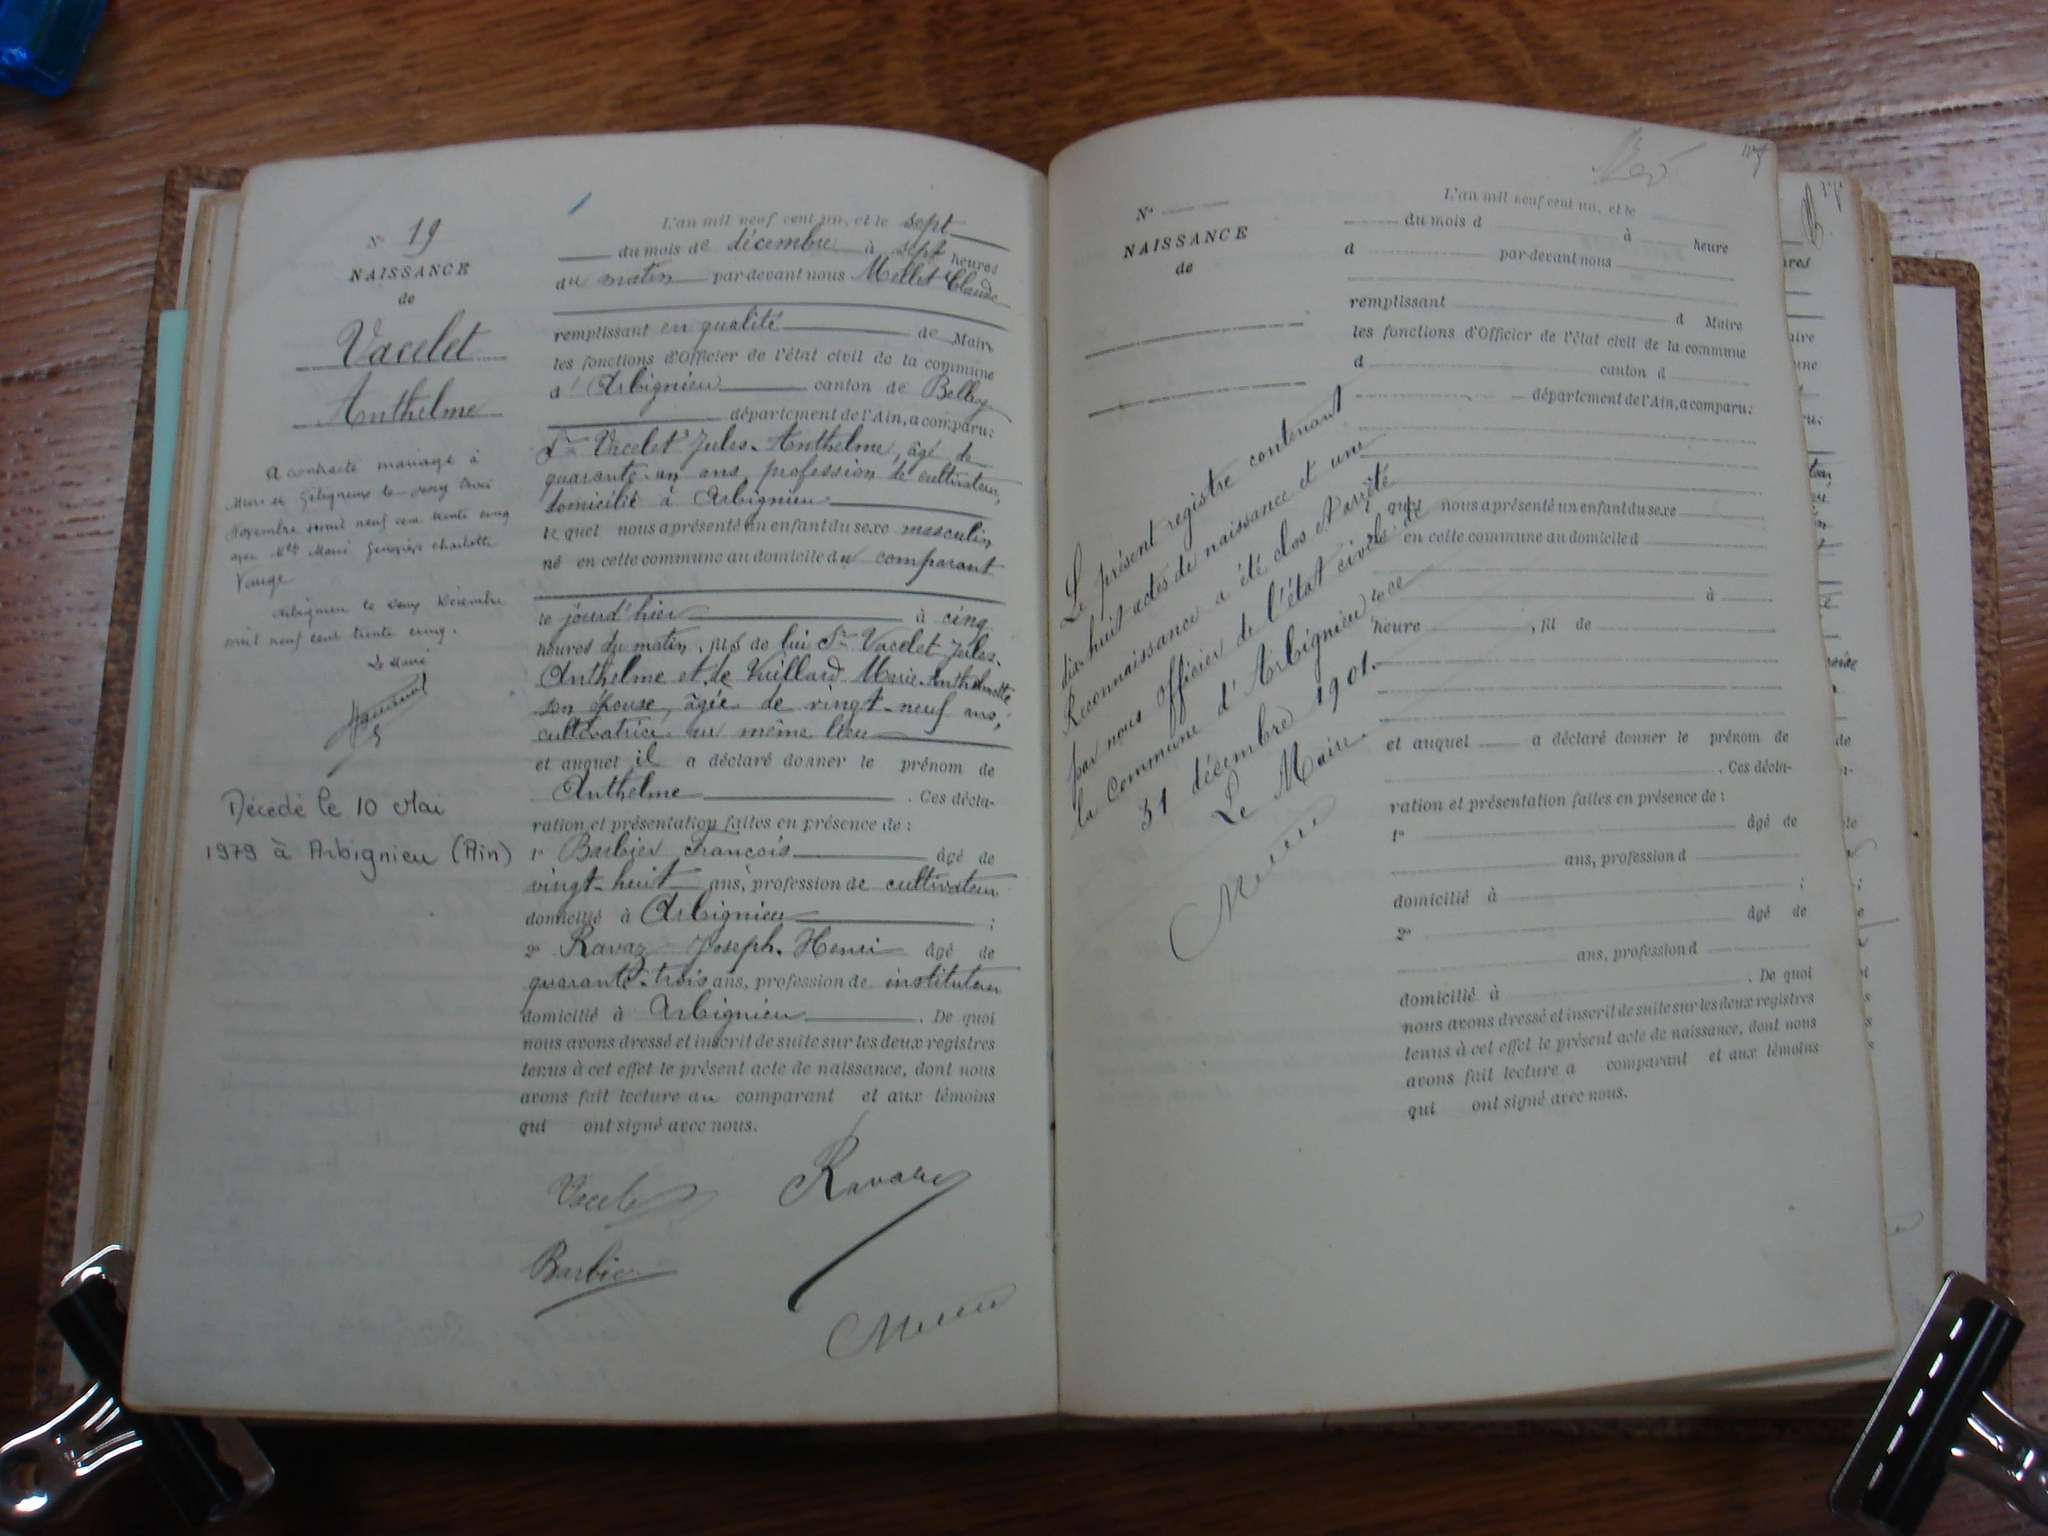 N° 19
NAISSANCE
de
Vacelet
Anthelme
A contracté mariage à
Murs et Gélignieux le vingt trois
Novembre mil neuf cent trente cinq
avec Mlle Marie Geneviève Charlotte
Vauge
Arbignieu le deux Décembre
mil neuf cent trente cinq.
Le Maire
Décédé le 10 Mai
1979 à Arbignieu (Ain)
L'an mil neuf cent un, et le sept
du mois de décembre à sept heures
du matin par-devant nous Mellet Claude
remplissant en qualité de Maire
les fonctions d'Officier de l'état civil de la commune
d'Arbignieu canton de Belley
département de l'Ain, a comparu:
Sr Vacelet Jules-Anthelme, âgé de
quarante-un ans, profession de cultivateur,
domicilié à Arbignieu
lequel nous a présenté un enfant du sexe masculin
né en cette commune au domicile du comparant
le jourd'hier à cinq
heures du matin, fils de lui Sr Vacelet Jules-
Anthelme et de Vuillard Marie-Anthelmette
son épouse, âgée de vingt-neuf ans,
cultivatrice au même lieu
et auquel il a déclaré donner le prénom de
Anthelme . Ces décla-
ration et présentation faites en présence de :
1° Barbier François âgé de
vingt-huit ans, profession de cultivateur
domicilié à Arbignieu ;
2° Ravaz Joseph-Henri âgé de
quarante-trois ans, profession de instituteur
domicilié à Arbignieu . De quoi
nous avons dressé et inscrit de suite sur les deux registres
tenus à cet effet le présent acte de naissance, dont nous
avons fait lecture au comparant et aux témoins
qui ont signé avec nous.
Vacelet Ravaz
Barbier
N°
NAISSANCE
de
L'an mil neuf cent un, et le
du mois d à heure
d par-devant nous
remplissant d Maire
les fonctions d'Officier de l'état civil de la commune
d canton d
département de l'Ain, a comparu:
quel nous a présenté un enfant du sexe
en cette commune au domicile d
le à
heure , fil de
et auquel a déclaré donner le prénom de
. Ces décla-
ration et présentation faites en présence de :
1° âgé de
ans, profession d
domicilié à ;
2° âgé de
ans, profession d
domicilié à . De quoi
nous avons dressé et inscrit de suite sur les deux registres
tenus à cet effet le présent acte de naissance, dont nous
avons fait lecture a comparant et aux témoins
qui ont signé avec nous.
Le présent registre contenant
dix-huit actes de naissance et une
Reconnaissance a été clos et arrêté
par nous Officier de l'état civil de
la Commune d'Arbignieu ce
31 décembre 1901.
Le Maire